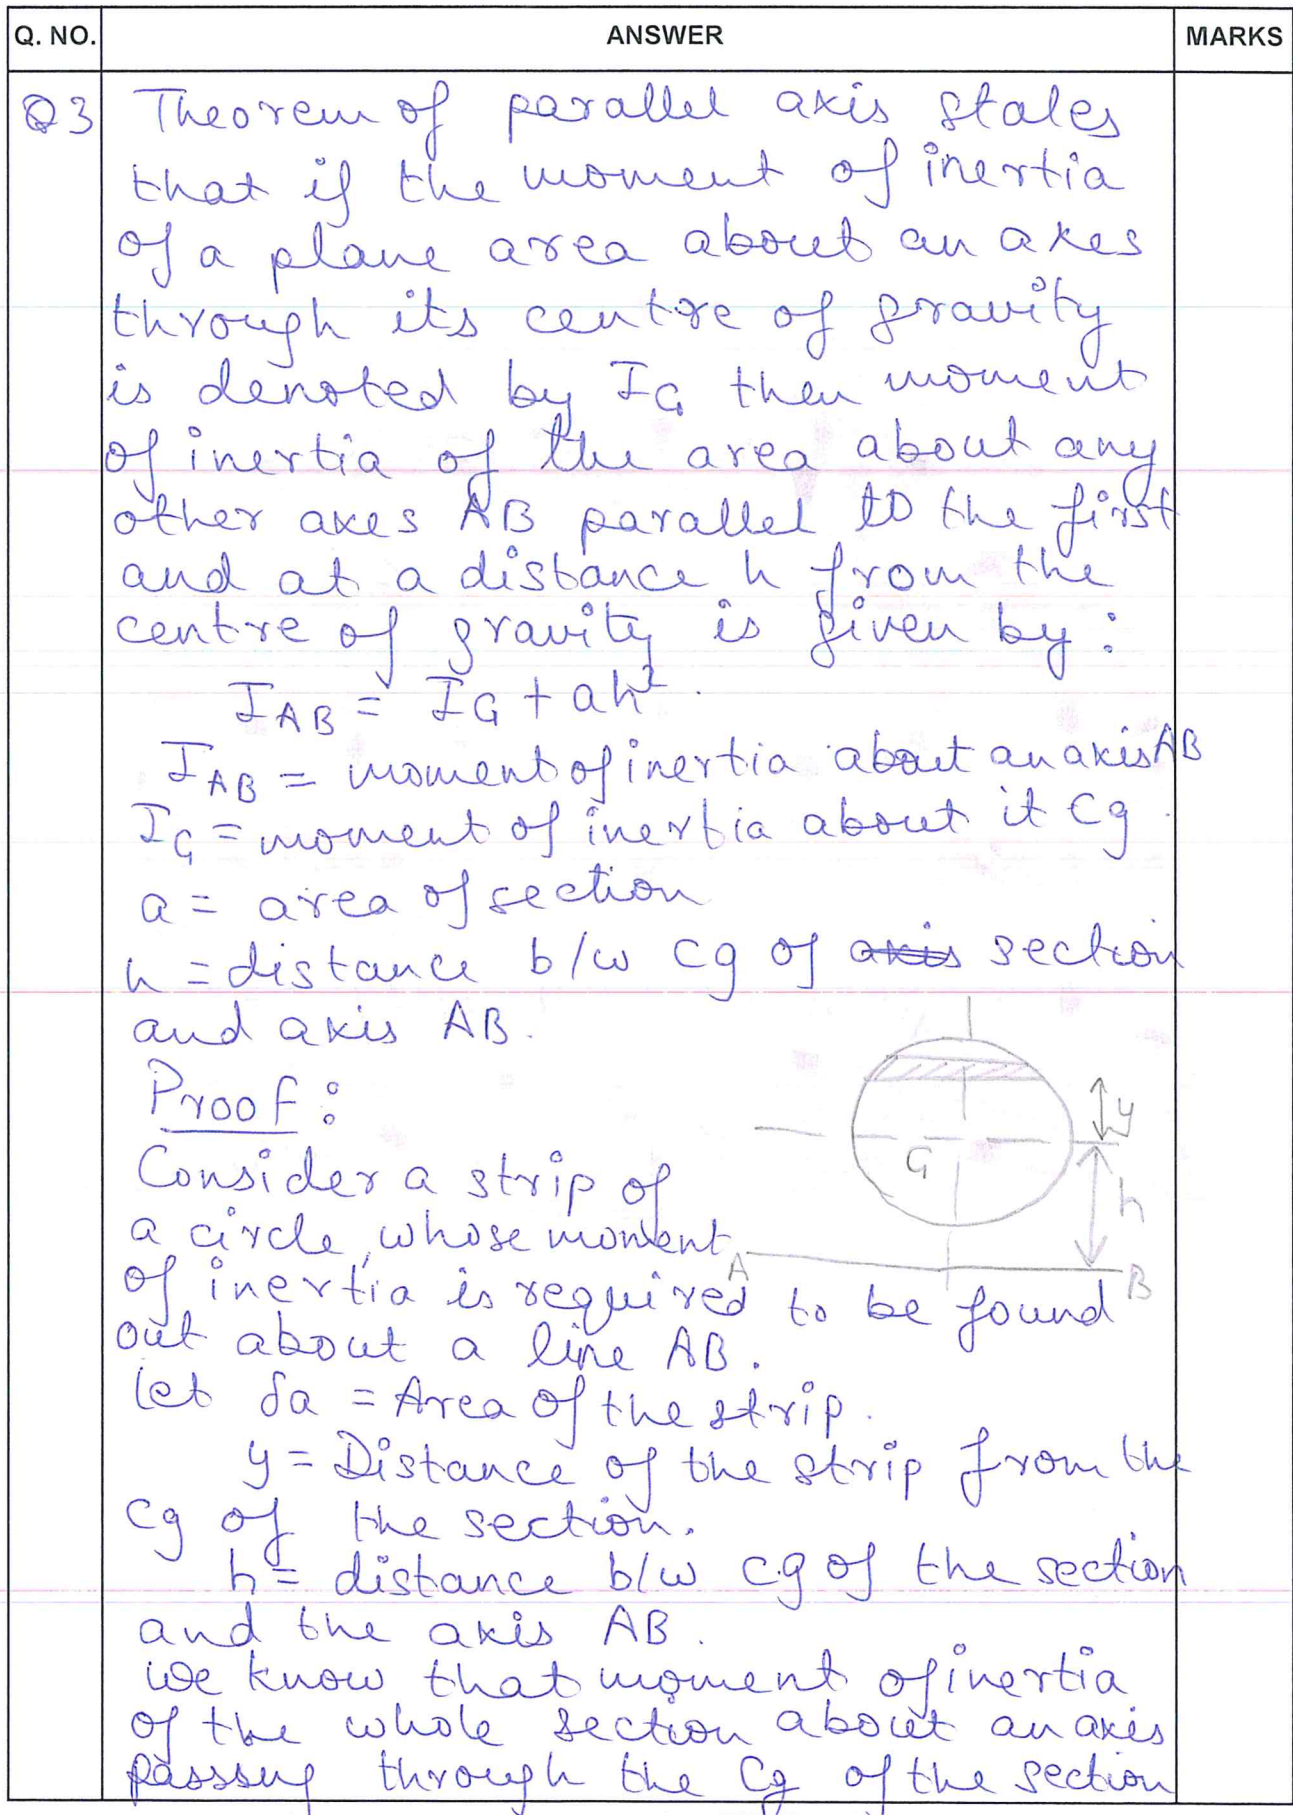 Q. NO. ANSWER MARKS
Q3 Theorem of parallel axis states
that if the moment of inertia
of a plane area about an axes
through its centre of gravity
is denoted by IG then moment
of inertia of the area about any
other axes AB parallel to the first
and at a distance h from the
centre of gravity is given by:
IAB = IG + ah².
IAB = moment of inertia about an axis AB
IG = moment of inertia about it Cg.
a = area of section
h = distance b/w Cg of axis section
and axis AB.
Proof:
Consider a strip of
a circle, whose moment
of inertia is required to be found
out about a line AB.
y
G
h
A
B
let δa = Area of the strip.
y = Distance of the strip from the
Cg of the section.
h = distance b/w c.g of the section
and the axis AB.
we know that moment of inertia
of the whole section about an axis
passsug through the Cg of the section